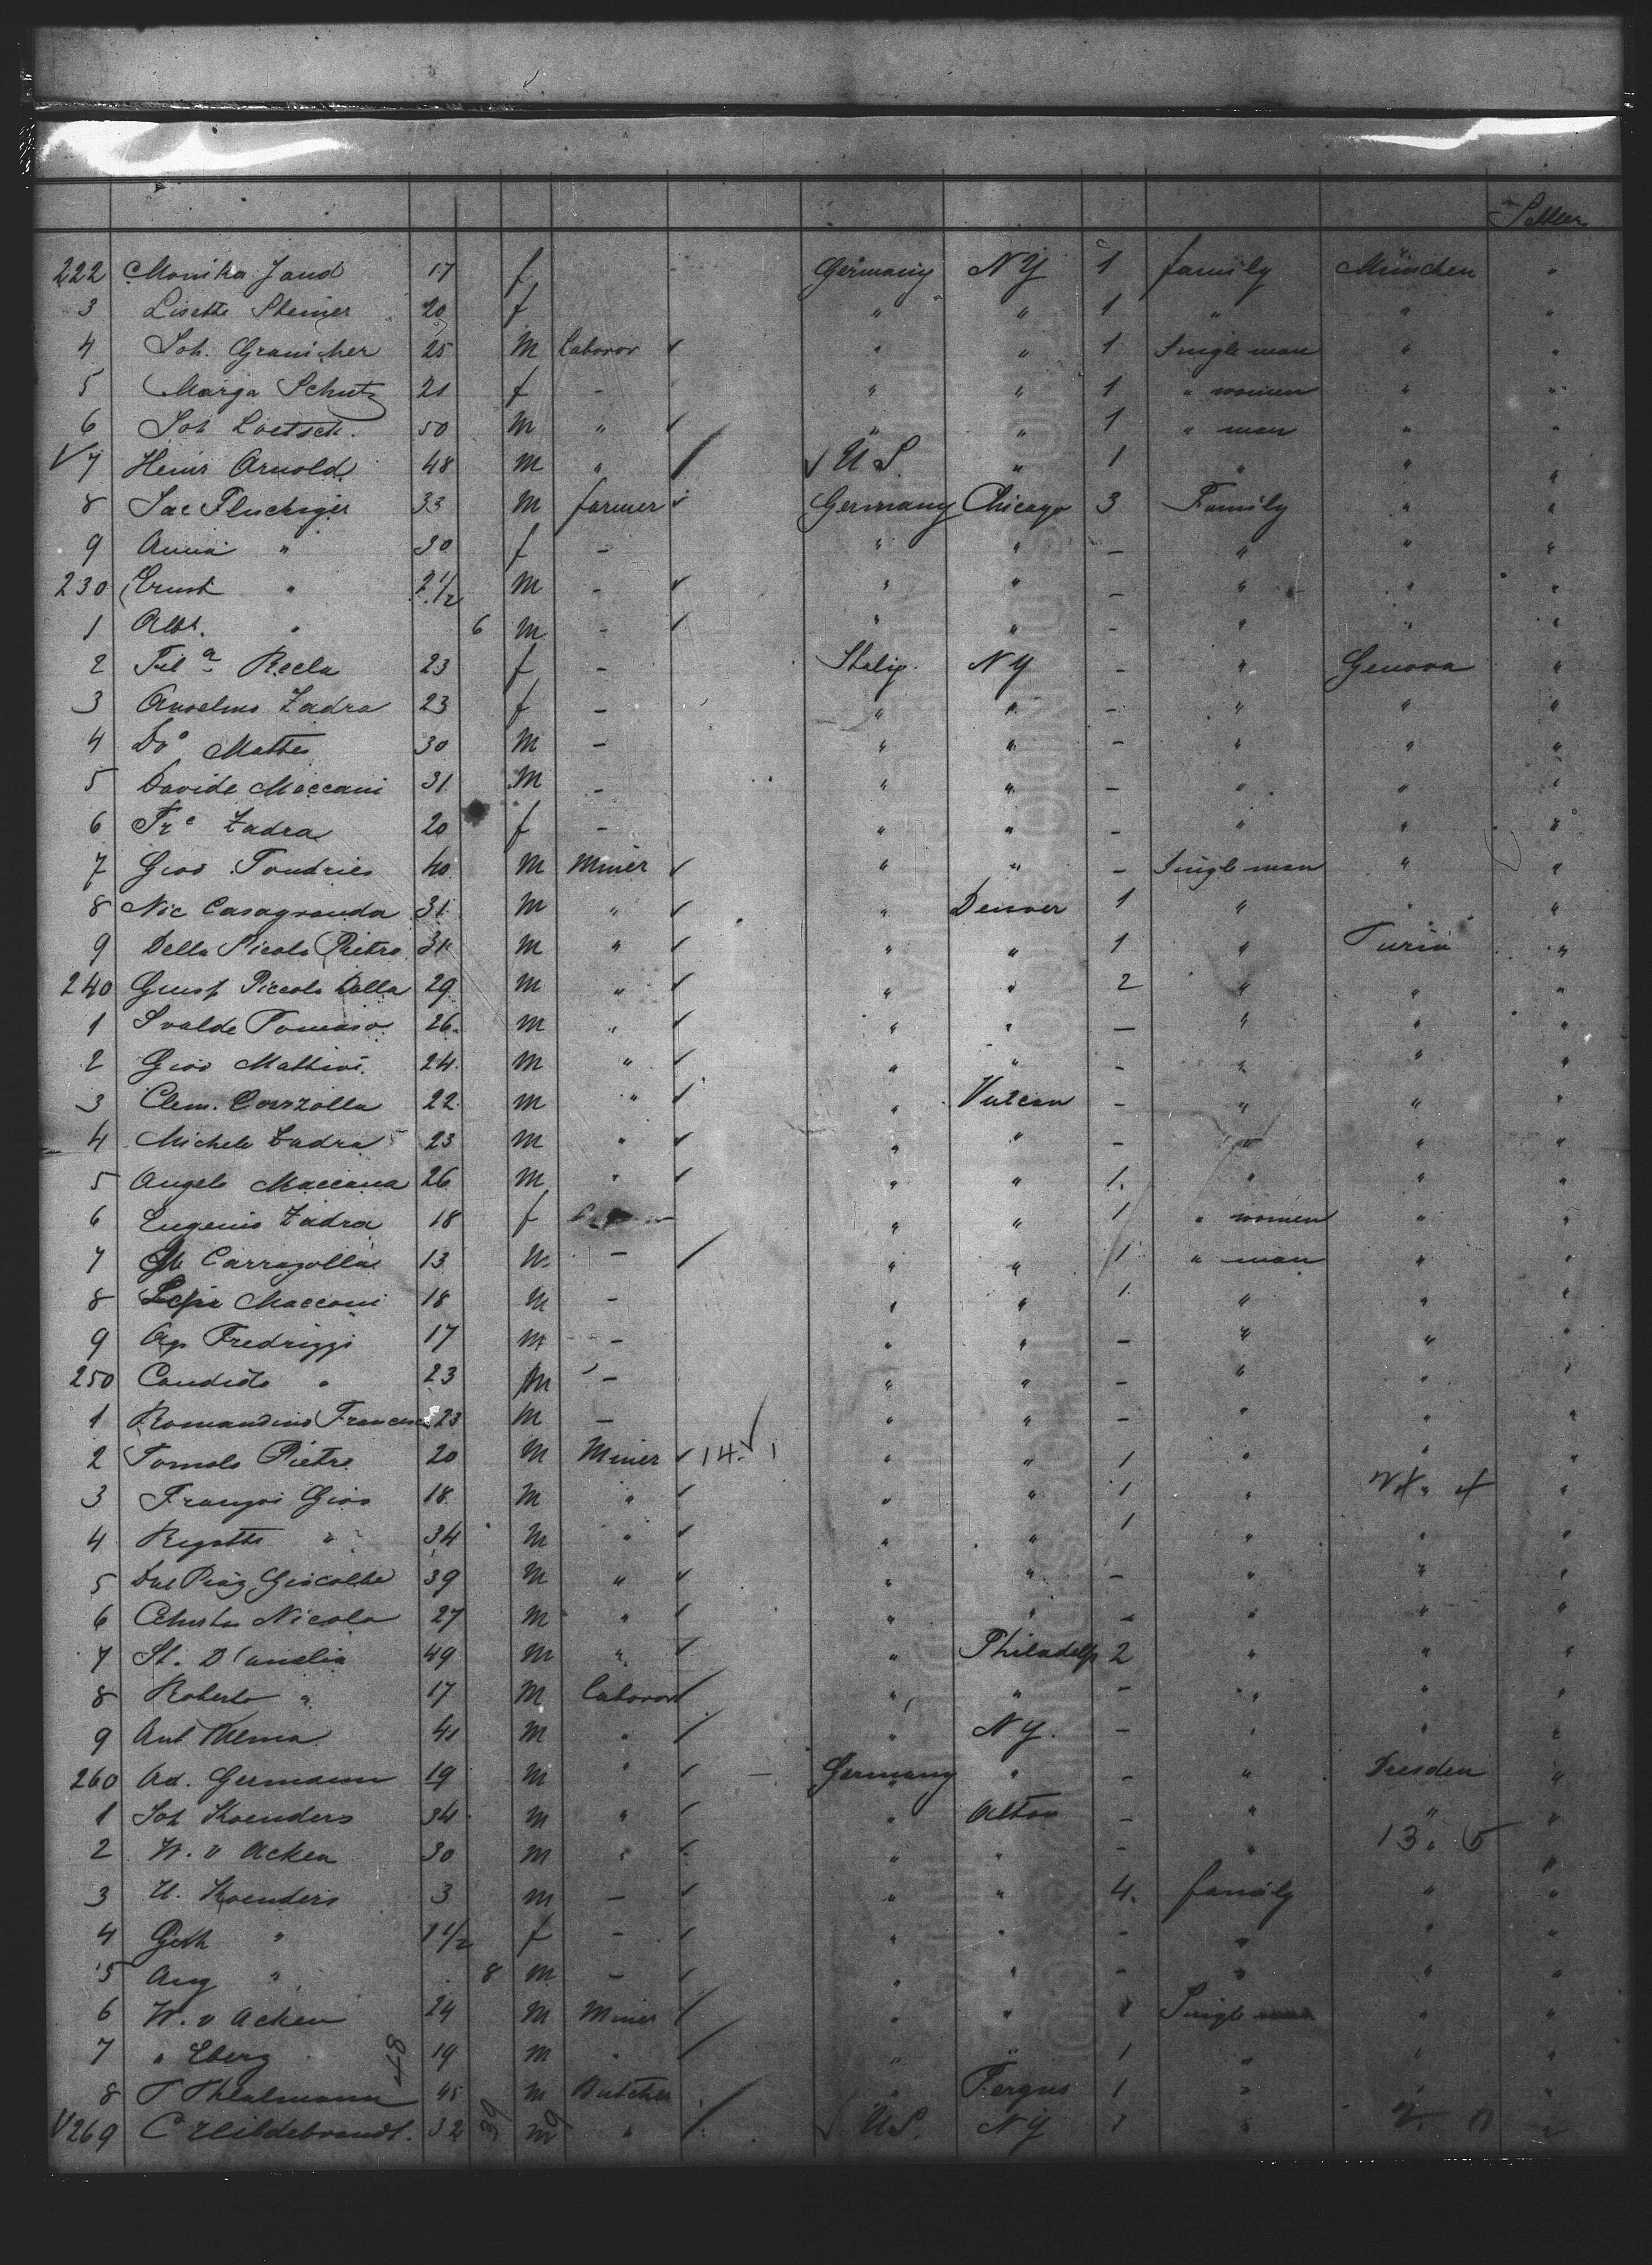 Settler
222 Monika Jand 17 f Germany NY 1 family München "
3 Lisette Steiner 20 f " " 1 " " "
4 Joh. Granicher 25 M Laboror ✓ " " 1 Single man " "
5 Marga Schutz 21 f - " " 1 " women " "
6 Joh Loetsch. 50 M " ✓ " " 1 " man " "
✓ 7 Heinr Arnold 48 M " / ✓ U S. " 1 " " "
8 Jac Fluckiger 33 M farmer ✓ Germany Chicago 3 Family " "
9 Anna " 30 f - " " - " " "
230 Ernst " 2 1/2 M - ✓ " " - " " "
1 Alb. " 6 M - ✓ " " - " " "
2 Recla 23 f - Italy. NY - " Genova "
3 Anselmo Zadra 23 f - " " - " " "
4 Do Matteo 30 M - " " - " " "
5 Davide Maccani 31. M - " " - " " "
6 Fr Zadra 20 f - " " - " " "
7 Giov. Tondries 40 M Miner ✓ " " - Single man " "
8 Nic Casagranda 31. M " ✓ " Denver 1 " . "
9 Della Picola Pietro 31 M " ✓ " " 1 " Turin "
240 Giusp Piccola Dalla 29 M " ✓ " " 2 " " "
1 Svalde Tomaso 26. M " ✓ " " - " " "
2 Giov Mattivi. 24. M " ✓ " " - " " "
3 Clem. 22. M " ✓ " Vulcan - " " "
4 Michele Zadra 23 M " ✓ " " - " " "
5 Angelo Maccana 26 M " ✓ " " 1. " " "
6 Eugenio Zadra 18 f " " 1 " women " "
7 Carrazolla 13 M. - / " " 1 " man " "
8 Macconi 18 M - " " 1. " " "
9 Ag Fredrizzi 17 M - " " - " " "
250 Candido " 23 M - " " - " " "
1 Romandino Francesco 23 M - " " - " " "
2 Tomolo Pietro 20 M Miner ✓ 14. ✓ 1 " " 1 " " "
3 Giov 18. M " ✓ " " 1 " " "
4 Rigotti " 34 M " ✓ " " 1 " " "
5 Dal Piaz 39 M " ✓ " " - " " "
6 Nicola 27 M " ✓ " " - " " "
7 St. D'amelia 49 M " ✓ " Philadelp 2 " " "
8 Roberto " 17 M Laboror ✓ " " - " " "
9 Ant 41 M " / " NY. - " " "
260 Ad. Germann 19 M " ✓ - Germany " - " Dresden "
1 Joh Koenders 34 M " ✓ " Alton - " " "
2 W. v Acken 30 M " ✓ " " - " 13. 5 "
3 H. Koenders 3 M - ✓ " " 4. family " "
4 " 1 1/2 f - ✓ " " - " " "
5 Aug " 8 M - ✓ " " - " " "
6 W. v Acken 24 M Miner ✓ " " 1 Single man " "
7 " Eberg 48 19 M " / " " 1 " " "
8 T Thelmann 45 M Butcher / " Fergus 1 " " "
✓ 269 C Hildebrandt. 32 39 M 9 " / ✓ U S. NY 1 "